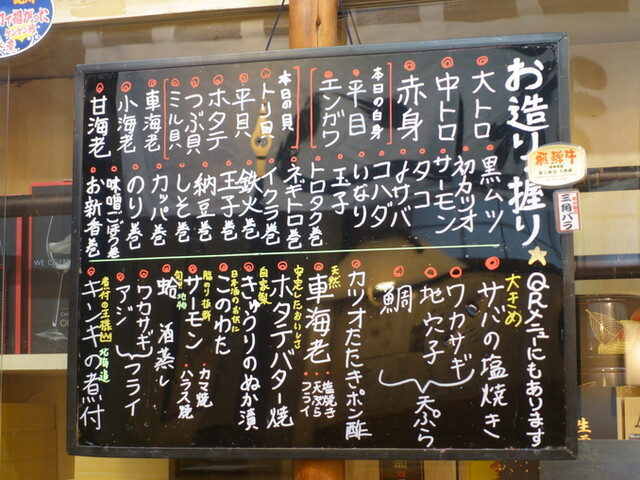 お造り・握り★
QRメニューにもあります
大トロ
中トロ
赤身
本日の白身
平目
エンガワ
本日の貝
トリ貝
平貝
ホタテ
つぶ貝
ミル貝
車海老
小海老
甘海老
黒ムツ
初カツオ
サーモン
タコ
〆サバ
コハダ
いなり
玉子
トロタク巻
ネギトロ巻
イクラ巻
鉄火巻
玉子巻
納豆巻
しそ巻
カッパ巻
のり巻
味噌ごぼう巻
お新香巻
大きめ
サバの塩焼き
ワカサギ
地穴子
鯛
天ぷら
カツオたたきポン酢
天然
車海老
・塩焼き
・天ぷら
・フライ
安定したおいしさ
ホタテバター焼
自家製
きゅうりのぬか漬
日本酒のお供に
このわた
脂のり抜群
サーモン
・カマ焼
・ハラス焼
旬!!地物
蛤 酒蒸し
ワカサギ
アジ
フライ
煮付の王様
北海道
キンキの煮付
飛騨牛
三角バラ